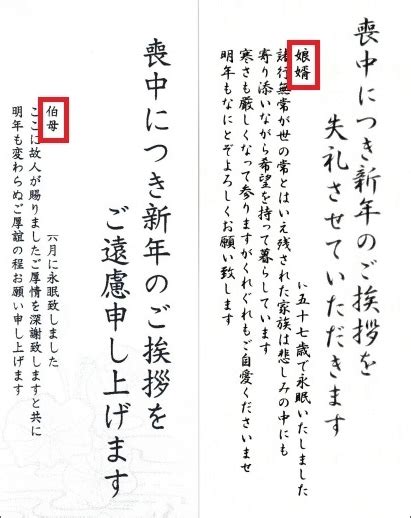 喪中につき新年のご挨拶を
失礼させていただきます
娘婿
に五十七歳で永眠いたしました
諸行無常が世の常とはいえ残された家族は悲しみの中にも
寄り添いながら希望を持って暮らしています
寒さも厳しくなって参りますがくれぐれもご自愛くださいませ
明年もなにとぞよろしくお願い致します
喪中につき新年のご挨拶を
ご遠慮申し上げます
伯母
六月に永眠致しました
ここに故人が賜りましたご厚情を深謝致しますと共に
明年も変わらぬご厚誼の程お願い申し上げます